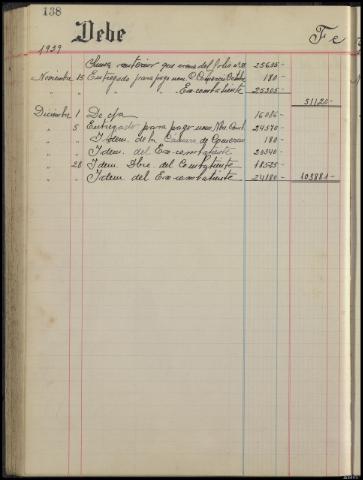 138
Debe Fe
1939
Suma anterior que viene del folio 25635-
Noviembre 15 Entregado para pago nom. C. Comercio Octubre 180-
" " " " Ex-combatiente 25305-
51120-
Diciembre 1 De cja 16086-
" 5 Entregado para pago nom. Nbre. Comb. 24570-
" " Idem. de la Cámara de Comercio 180-
" " Idem. del Ex-combatiente 20340-
" 28 Idem Dbre. del Combatiente 18525-
" " Idem del Ex-combatiente 24180- 103881-